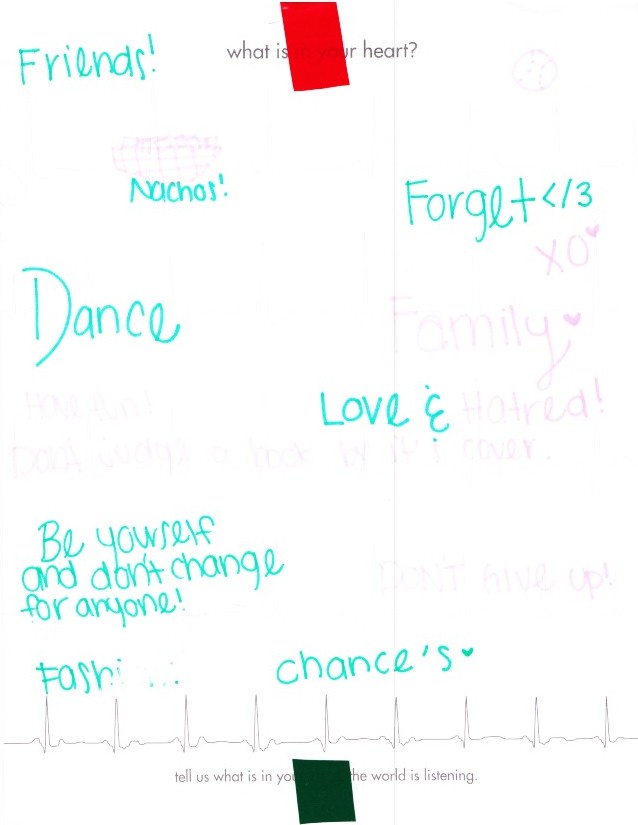 Friends!
what is your heart?
Nachos!
Forget </3
XO
Dance
Family
Have fun!
Love & Hatred!
Don't judge a book by it's cover.
Be yourself
and don't change
for anyone!
DON'T GIVE UP!
Fashi
chance's
tell us what is in the world is listening.